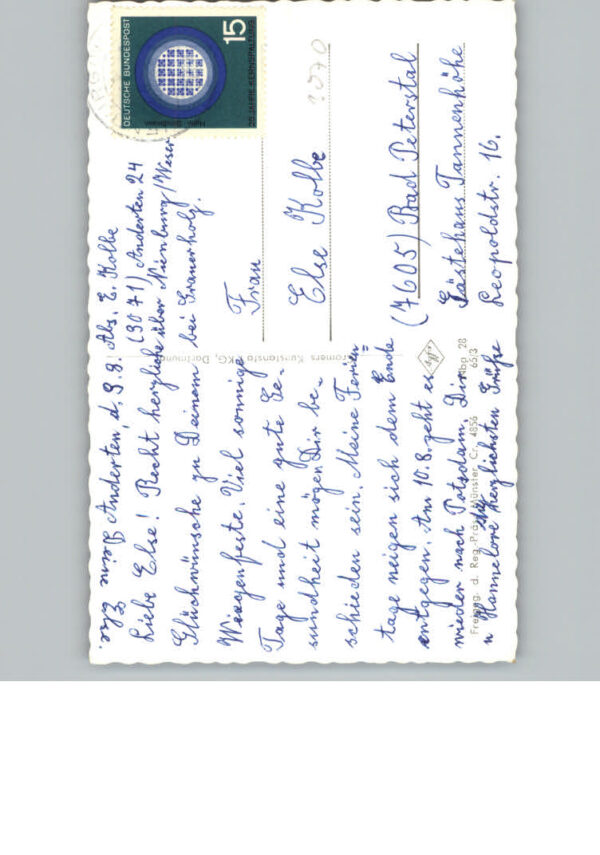 Anderten, d. 9.8.
Liebe Else! Recht herzliche
Glückwünsche zu Deinem
Wiegenfeste. Viel sonnige
Tage und eine gute Ge-
sundheit mögen Dir be-
schieden sein. Meine Ferien=
tage neigen sich dem Ende
entgegen. Am 10.8. geht es
wieder nach Potsdam. Dir
u Hannelore die herzlichsten Grüße
Deine
Abs. E. Kolbe
(3071) Anderten 24
über Nienburg/Weser
bei
DEUTSCHE BUNDESPOST
15
25 JAHRE KERNSPALTUNG
Hahn Straßmann
Frau
Else Kolbe
(7605) Bad Peterstal
Gästehaus Tannenhöhe
Leopoldstr. 16.
Cromers Kunstanstalt KG, Dortmund
Agfa
Nbp 28
65/3
Freigeg. d. Reg.-Präs. Münster, Cr. 4856